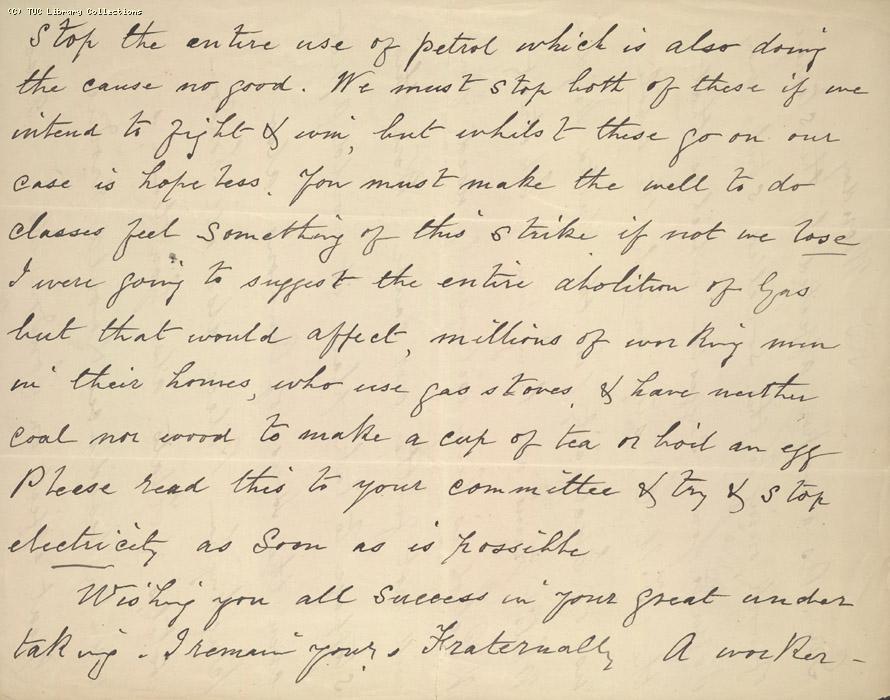 (C) TUC Library Collections
Stop the entire use of petrol which is also doing
the cause no good. We must stop both of these if we
intend to fight & win, but whilst these go on our
case is hopeless. You must make the well to do
classes feel something of this strike if not we lose
I were going to suggest the entire abolition of Gas
but that would affect, millions of working men
in their homes, who use gas stoves, & have neither
coal nor wood to make a cup of tea or boil an egg
Please read this to your committee & try & stop
electricity as soon as is possible
Wishing you all success in your great under
taking. I remain yours Fraternally A worker -